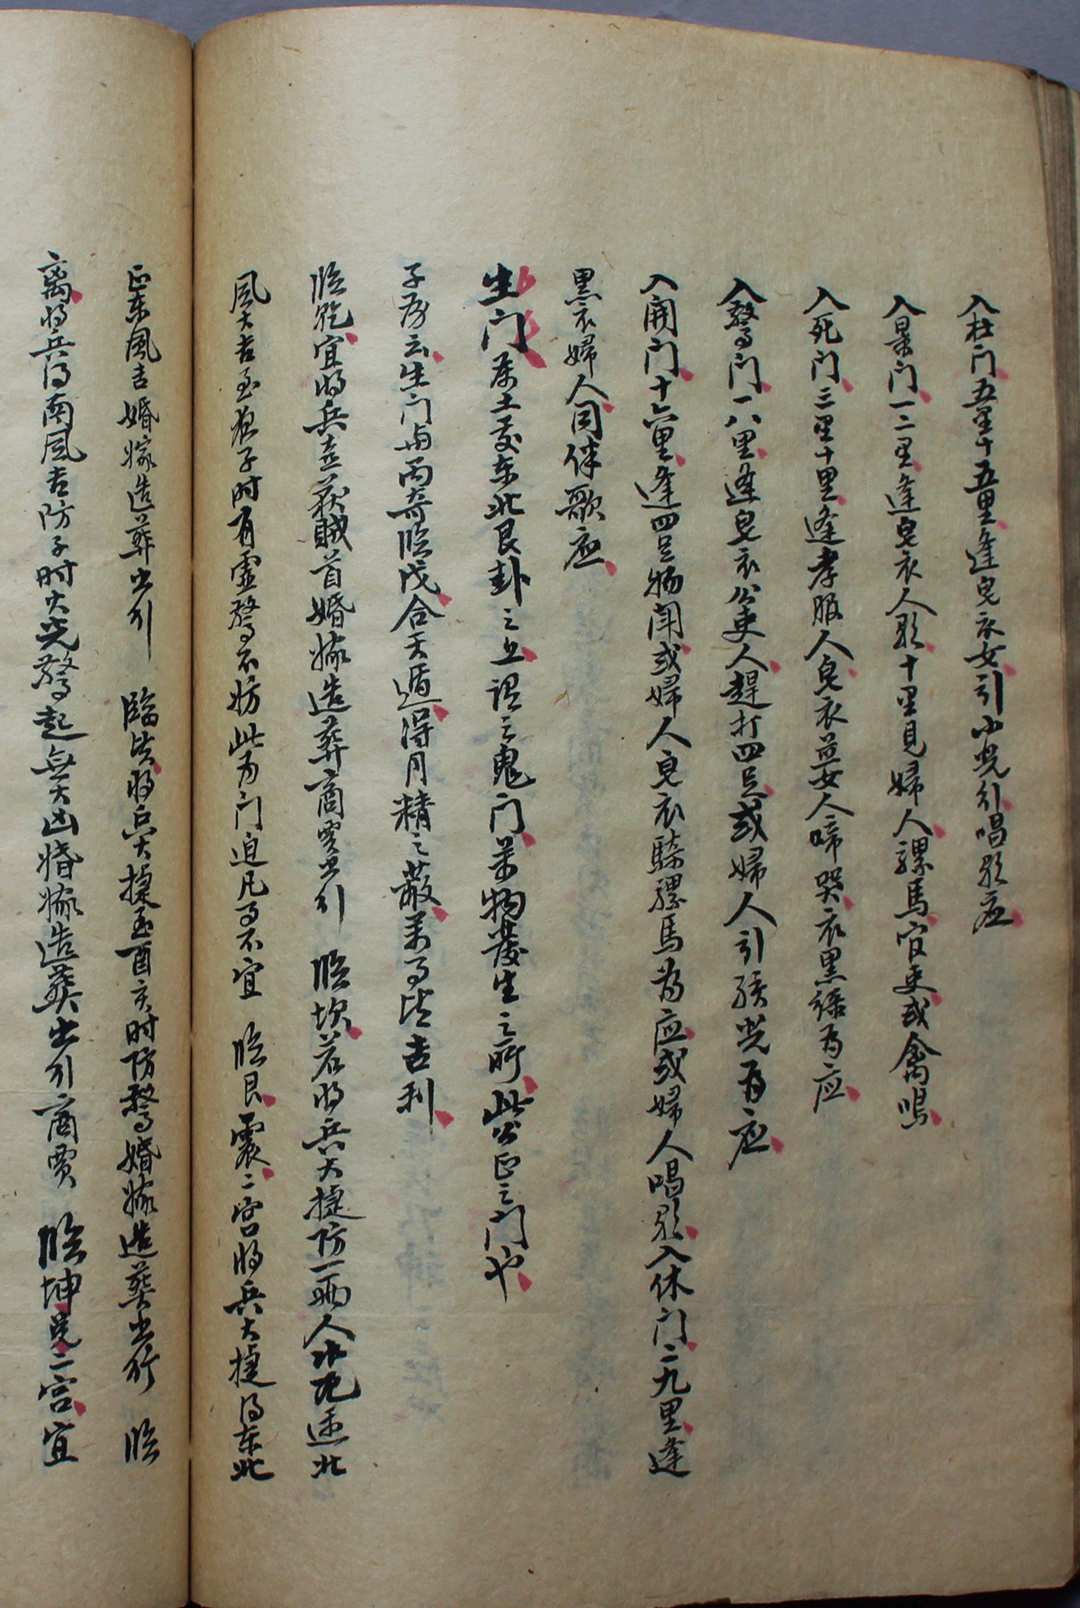 入杜门五里十五里逢皂衣女引小児引唱歌应
入景门一二里逢皂衣人歌十里見婦人騾馬官吏或禽鳴
入死门三里十里逢孝服人皂衣並女人啼哭衣黒緑为应
入驚门一八里逢皂衣公吏人趕打四足或婦人引孩児为应
入開门十六里逢四足物闹或婦人皂衣騎騾馬為应或婦人唱歌入休门一二九里逢
黒衣婦人同伴歌应
生门属土發东北艮卦之上谓之鬼门萬物發生之所此公正之门也
子房云生门与丙奇临戊合天遁得月精之蔽萬事皆吉利
临乾宜将兵立获賊首婚嫁造葬商賈出行 临坎若将兵大捷防一两人北
風大吉至夜子时有虚驚不妨此为门迫凡事不宜 临艮震二宫将兵大捷得东北
正东風吉婚嫁造葬出行 臨巽将兵大捷至酉亥时防驚婚嫁造葬出行 临
离将兵得南風吉防子时火光驚起無大凶婚嫁造葬出行商賈 临坤兑二宫宜